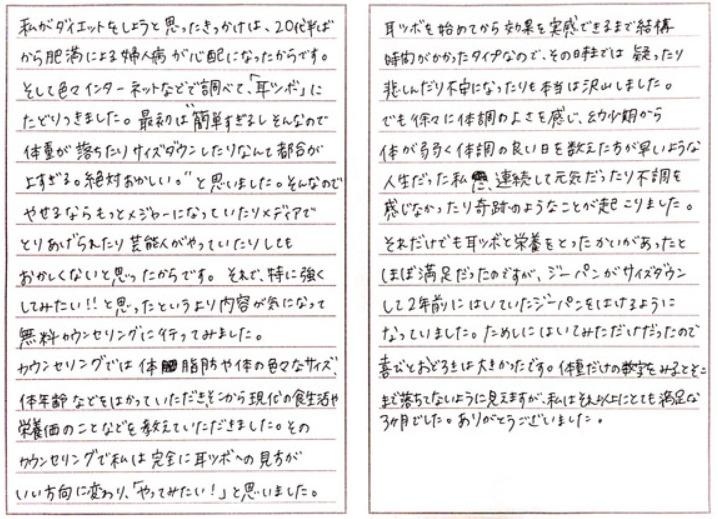 私がダイエットをしようと思ったきっかけは、20代半ば
から肥満による婦人病が心配になったからです。
そして色々インターネットなどで調べて、「耳ツボ」に
たどりつきました。最初は"簡単すぎるしそんなので
体重が落ちたりサイズダウンしたりなんて都合が
よすぎる。絶対おかしい。"と思いました。そんなので
やせるならもっとメジャーになっていたりメディアで
とりあげられたり芸能人がやっていたりしても
おかしくないと思ったからです。それで、特に強く
してみたい!!と思ったというより内容が気になって
無料カウンセリングに行ってみました。
カウンセリングでは体脂肪や体の色々なサイズ、
体年齢などをはかっていただき、そこから現代の食生活や
栄養価のことなどを教えていただきました。その
カウンセリングで私は完全に耳ツボへの見方が
いい方向に変わり、「やってみたい!」と思いました。
耳ツボを始めてから効果を実感できるまで結構
時間がかかったタイプなので、その時までは疑ったり
悲しんだり不安になったりも本当は沢山しました。
でも徐々に体調のよさを感じ、幼少期から
体が弱く体調の良い日を数えた方が早いような
人生だった私が、連続して元気だったり不調を
感じなかったり奇跡のようなことが起こりました。
それだけでも耳ツボと栄養をとったかいがあったと
ほぼ満足だったのですが、ジーパンがサイズダウン
して2年前にはいていたジーパンをはけるように
なっていました。ためしにはいてみただけだったので
喜びとおどろきは大きかったです。体重だけの数字をみるとそこ
まで落ちてないように見えますが、私はそれ以上にとても満足な
3ヶ月でした。ありがとうございました。